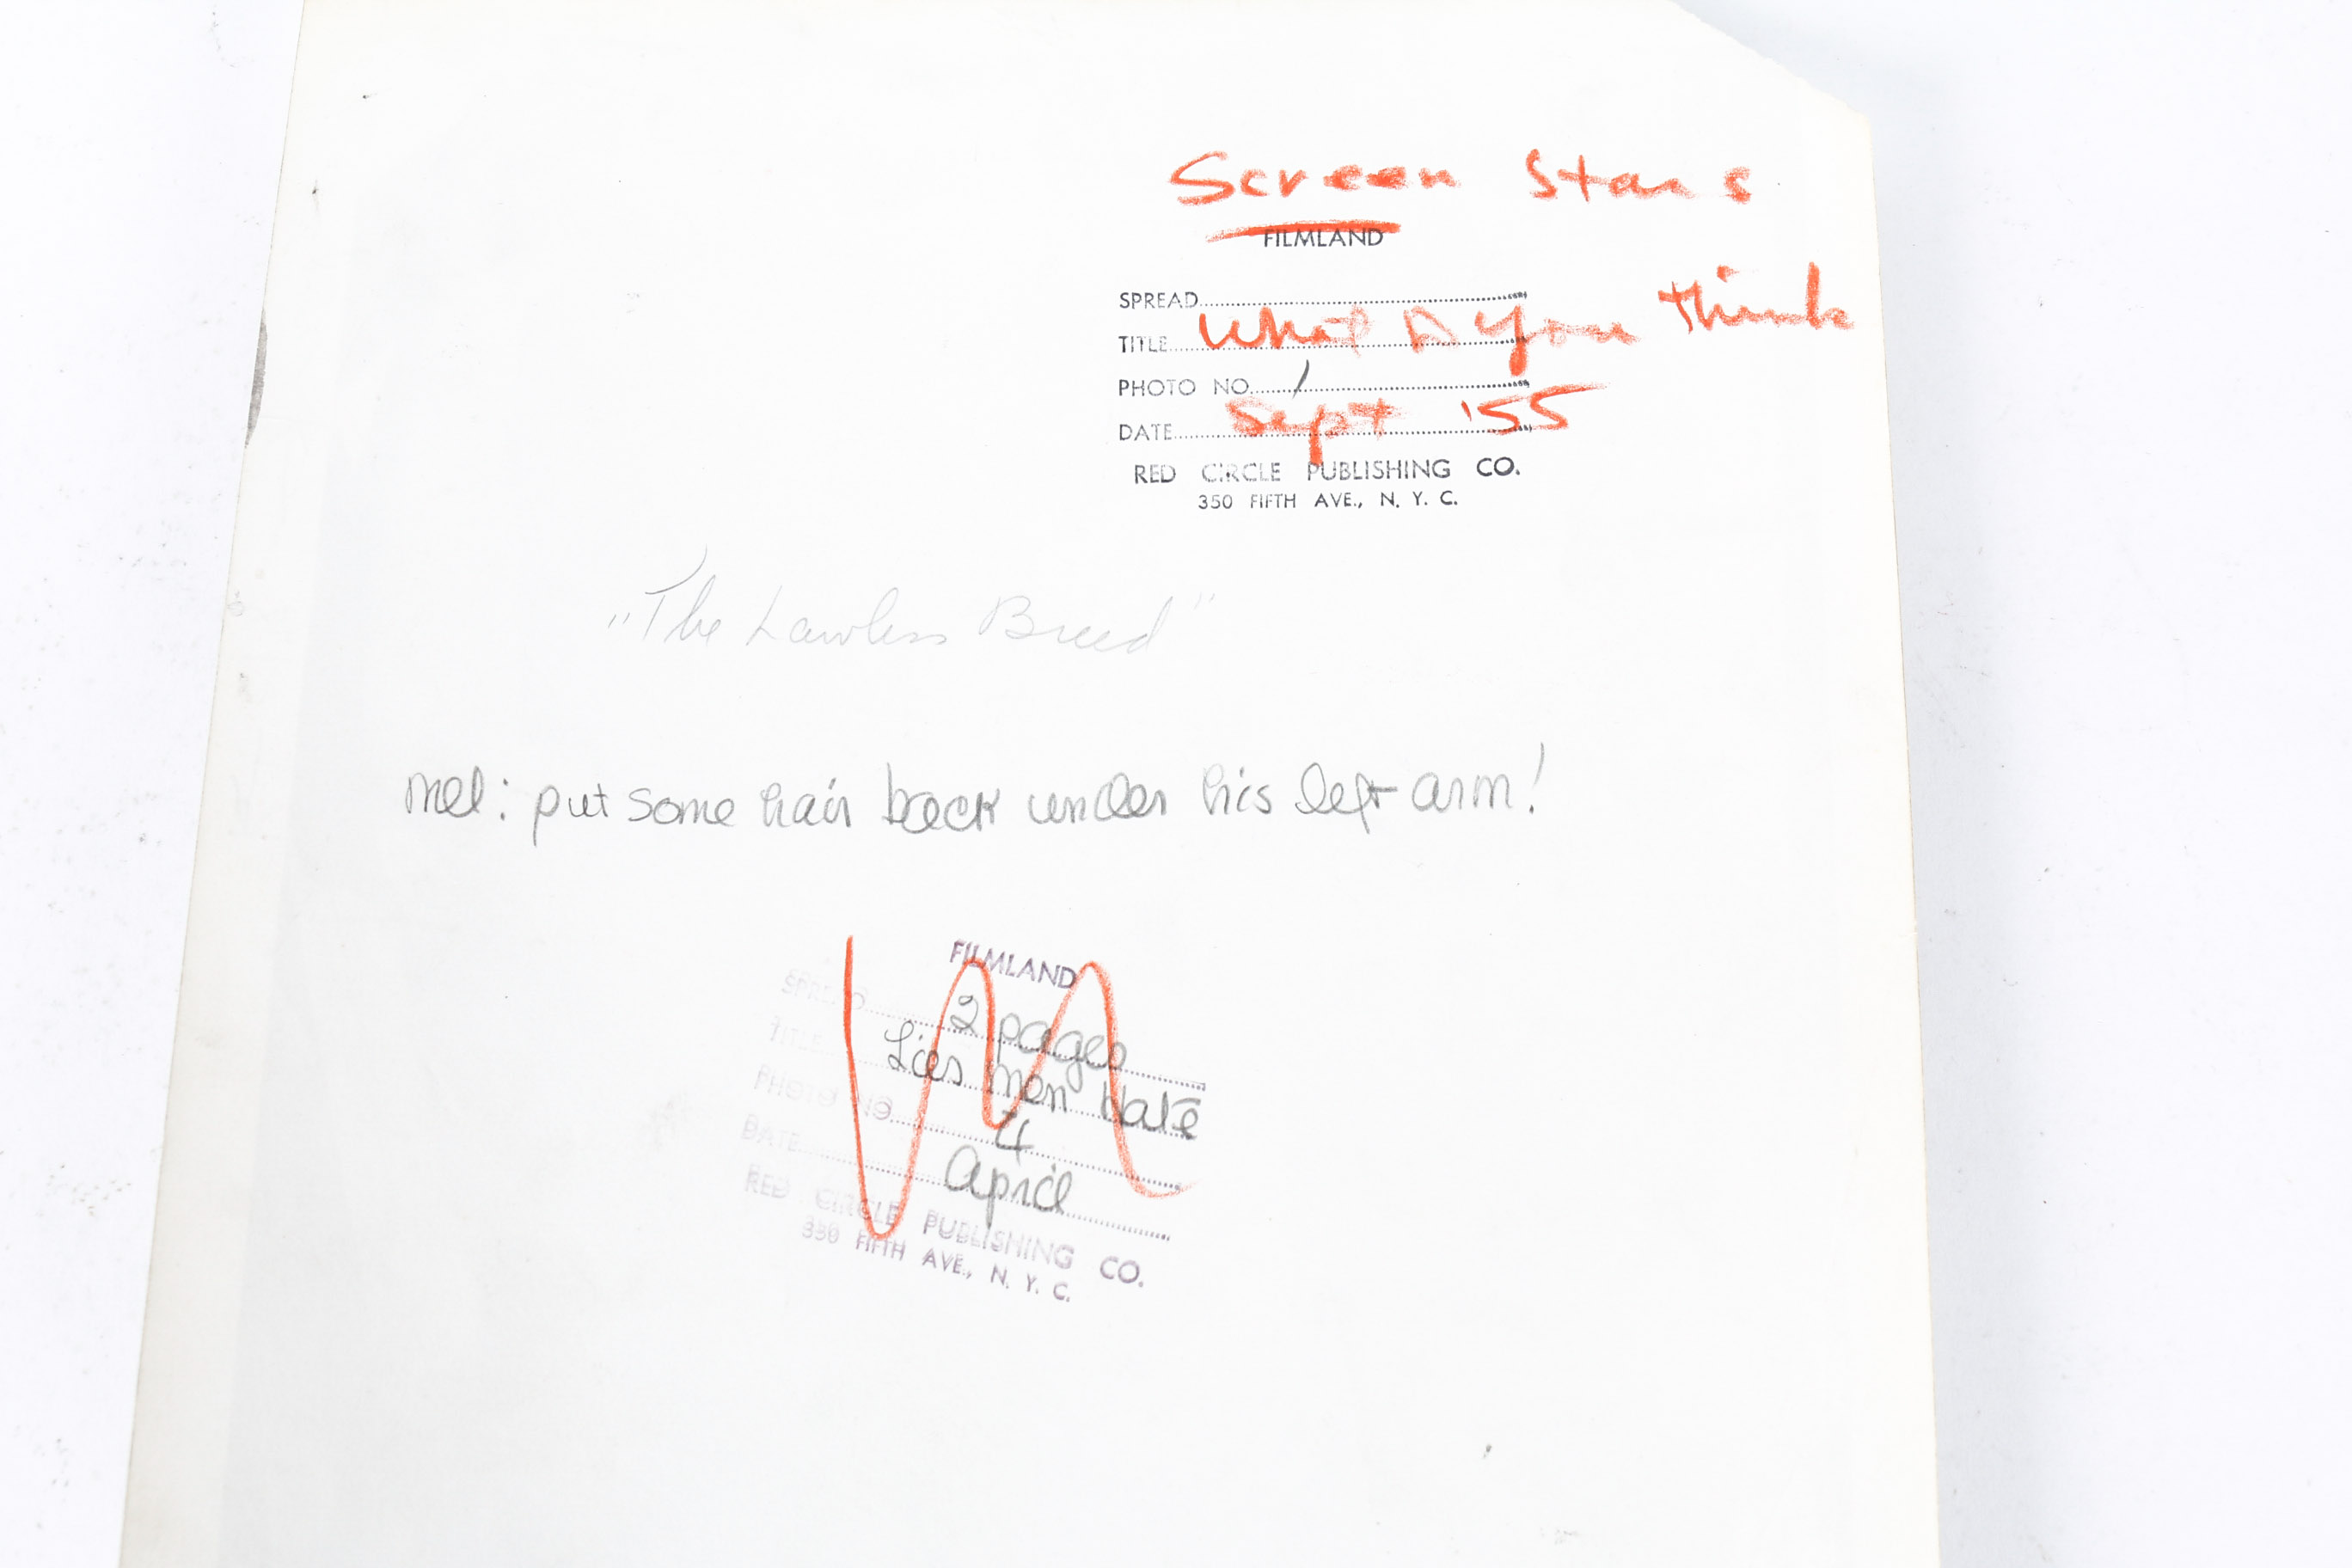 Screen Stars
FILMLAND
SPREAD
TITLE What Do You Think
PHOTO NO. 1
DATE Sept '55
RED CIRCLE PUBLISHING CO.
350 FIFTH AVE., N. Y. C.
"The Lawless Breed"
Mel: put some hair back under his left arm!
FILMLAND
SPREAD 2 pages
TITLE Lies Men Hate
PHOTO NO. 4
DATE April
RED CIRCLE PUBLISHING CO.
350 FIFTH AVE., N. Y. C.